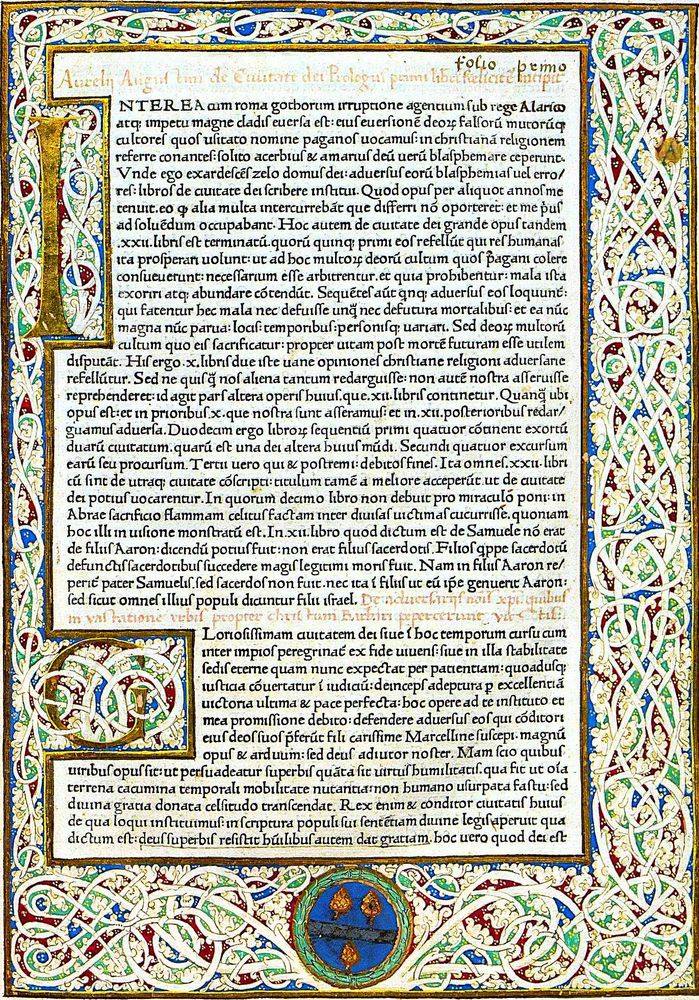 folio primo
Aurelij Augustini de Civitate dei Prologus primi libri foeliciter incipit
INTEREA cum roma gothorum irruptione agentium sub rege Alarico
atqꝫ impetu magne cladis eversa est: eius eversionē deoꝝ falsorū multorūqꝫ
cultores quos usitato nomine paganos vocamus: in christianā religionem
referre conantes: solito acerbius & amarius deū verū blasphemare ceperunt.
Vnde ego exardescēs zelo domus dei: adversus eorū blasphemias vel erro/
res: libros de civitate dei scribere institui. Quod opus per aliquot annos me
tenuit. eo qꝫ alia multa intercurrebāt que differri nō oporteret: et me pͥus
ad solvēdum occupabant. Hoc autem de civitate dei grande opus tandem
.xxii. libris est terminatū. quorū quinqꝫ primi eos refellūt qui res humanas
ita prosperari volunt: ut ad hoc multoꝝ deorū cultum quos pͣgani colere
consueverunt: necessarium esse arbitrentur. et quia prohibentur: mala ista
exoriri atqꝫ abundare cōtendūt. Sequētes aūt qͥnqꝫ adversus eos loquunt᷑:
qui fatentur hec mala nec defuisse unqͣ̄ nec defutura mortalibus: et ea nūc
magna nūc parva: locis: temporibus: personisqꝫ variari. Sed deoꝝ multorū
cultum quo eis sacrificatur: propter vitam post mortē futuram esse utilem
disputāt. His ergo .x. libris due iste vane opiniones christiane religioni adversarie
refellūtur. Sed ne quisqͣ̄ nos aliena tantum redarguisse: non autē nostra asseruisse
reprehenderet: id agit pars altera operis huius que .xii. libris continetur. Quanqͣ̄ ubi
opus est: et in prioribus .x. que nostra sunt asseramus: et in .xii. posterioribus redar/
guamus adversa. Duodecim ergo libroꝝ sequentiū primi quatuor cōtinent exortū
duarū civitatum. quarū est una dei altera huius mūdi. Secundi quatuor excursum
earū seu procursum. Tertii vero qui & postremi: debitos fines. Ita omnes .xxii. libri
cū sint de utraqꝫ civitate cōscripti: titulum tamē a meliore acceperūt. ut de civitate
dei potius vocarentur. In quorum decimo libro non debuit pro miraculō poni: in
Abrae sacrificio flammam celitus factam inter divisas victimas cucurrisse. quoniam
hoc illi in visione monstratū est. In .xii. libro quod dictum est de Samuele nō erat
de filiis Aaron: dicendū potius fuit: non erat filius sacerdotis. Filios qͥppe sacerdotū
defunctis sacerdotibus succedere magis legitimi moris fuit. Nam in filiis Aaron re/
perit᷑ pater Samuelis. sed sacerdos non fuit. nec ita ī filiis ut eū ip̄e genuerit Aaron:
sed sicut omnes illius populi dicuntur filii israel. De adversarijs nois xpi. quibus
in vastatione urbis propter christum Barbari pepercerunt
GLoriosissimam civitatem dei sive ī hoc temporum cursu cum
inter impios peregrinat᷑ ex fide vivens: sive in illa stabilitate
sedis eterne quam nunc expectat per patientiam: quoadusqꝫ
iusticia cōvertatur ī iudiciū: deinceps adeptura ꝑ excellentiā
victoria ultima & pace perfecta: hoc opere ad te instituto et
mea promissione debito: defendere adversus eos qui cōditori
eius deos suos p̄ferūt fili carissime Marcelline suscepi. magnū
opus & arduum: sed deus adiutor noster. Nam scio quibus
viribus opus sit: ut persuadeatur superbis quāta sit virtus humilitatis. qua fit ut oīa
terrena cacumina temporali mobilitate nutantia: non humano usurpata fastu: sed
divina gratia donata celsitudo transcendat. Rex enim & conditor civitatis huius
de qua loqui instituimus: in scriptura populi sui sentētiam divine legis aperuit qua
dictum est: deus superbis resistit hūilibus autem dat gratiam. hoc vero quod dei est